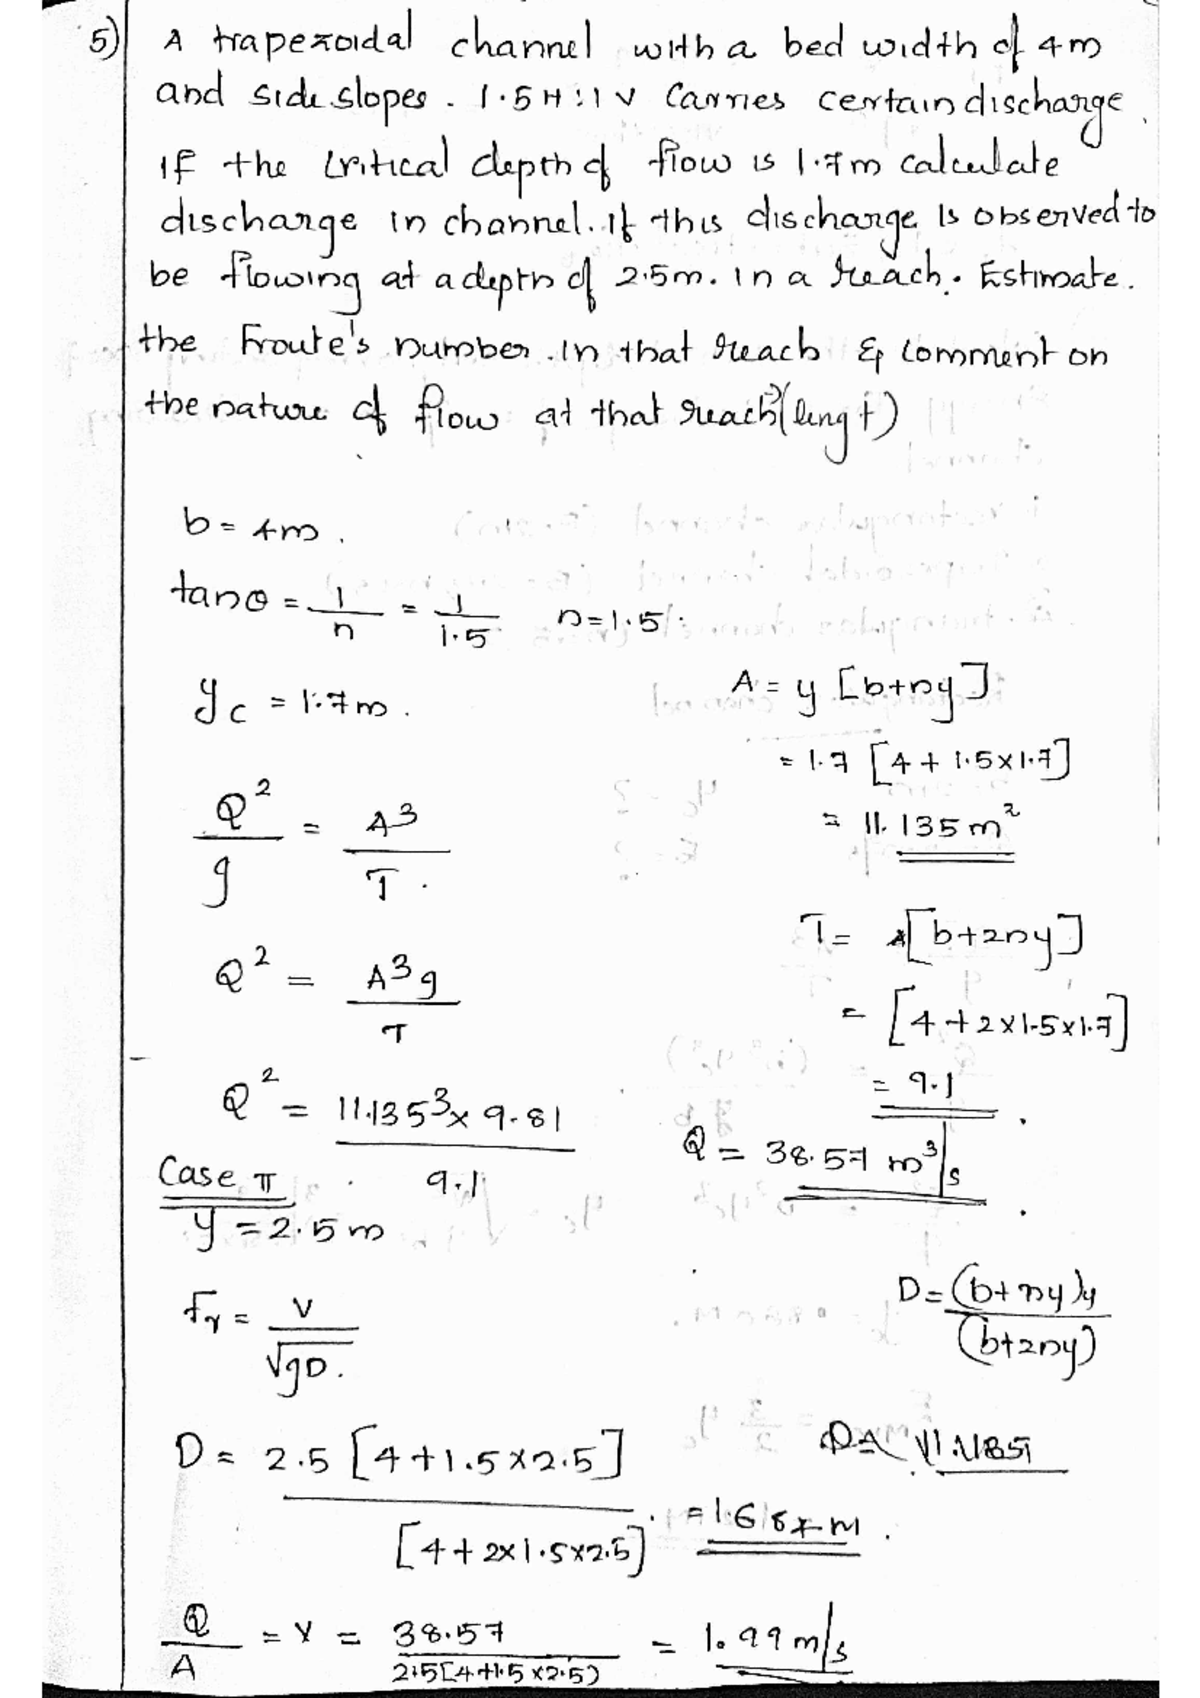 5) A trapezoidal channel with a bed width of 4m
and side slopes. 1.5H:1V Carries certain discharge.
If the critical depth of flow is 1.7m calculate
discharge in channel. If this discharge Is observed to
be flowing at a depth of 2.5m. in a reach. Estimate.
the Froute's number. in that reach & comment on
the nature of flow at that reach (lengt)
b = 4m.
tanθ = 1/n = 1/1.5 n=1.5.
yc = 1.7m.
A = y [b+ny]
= 1.7 [4 + 1.5×1.7]
= 11.135 m²
Q²/g = A³/T.
T = [b+2ny]
Q² = A³g/T
= [4+2×1.5×1.7]
= 9.1
Q² = 11.135³ × 9.81/9.1
Q = 38.57 m³/s
Case II
y = 2.5 m
Fr = V/√gD.
D = (b+ny)y/(b+2ny)
D = 2.5 [4+1.5×2.5]/[4+2×1.5×2.5] = 1.68 m.
Q/A = V = 38.57/2.5[4+1.5×2.5) = 1.99 m/s